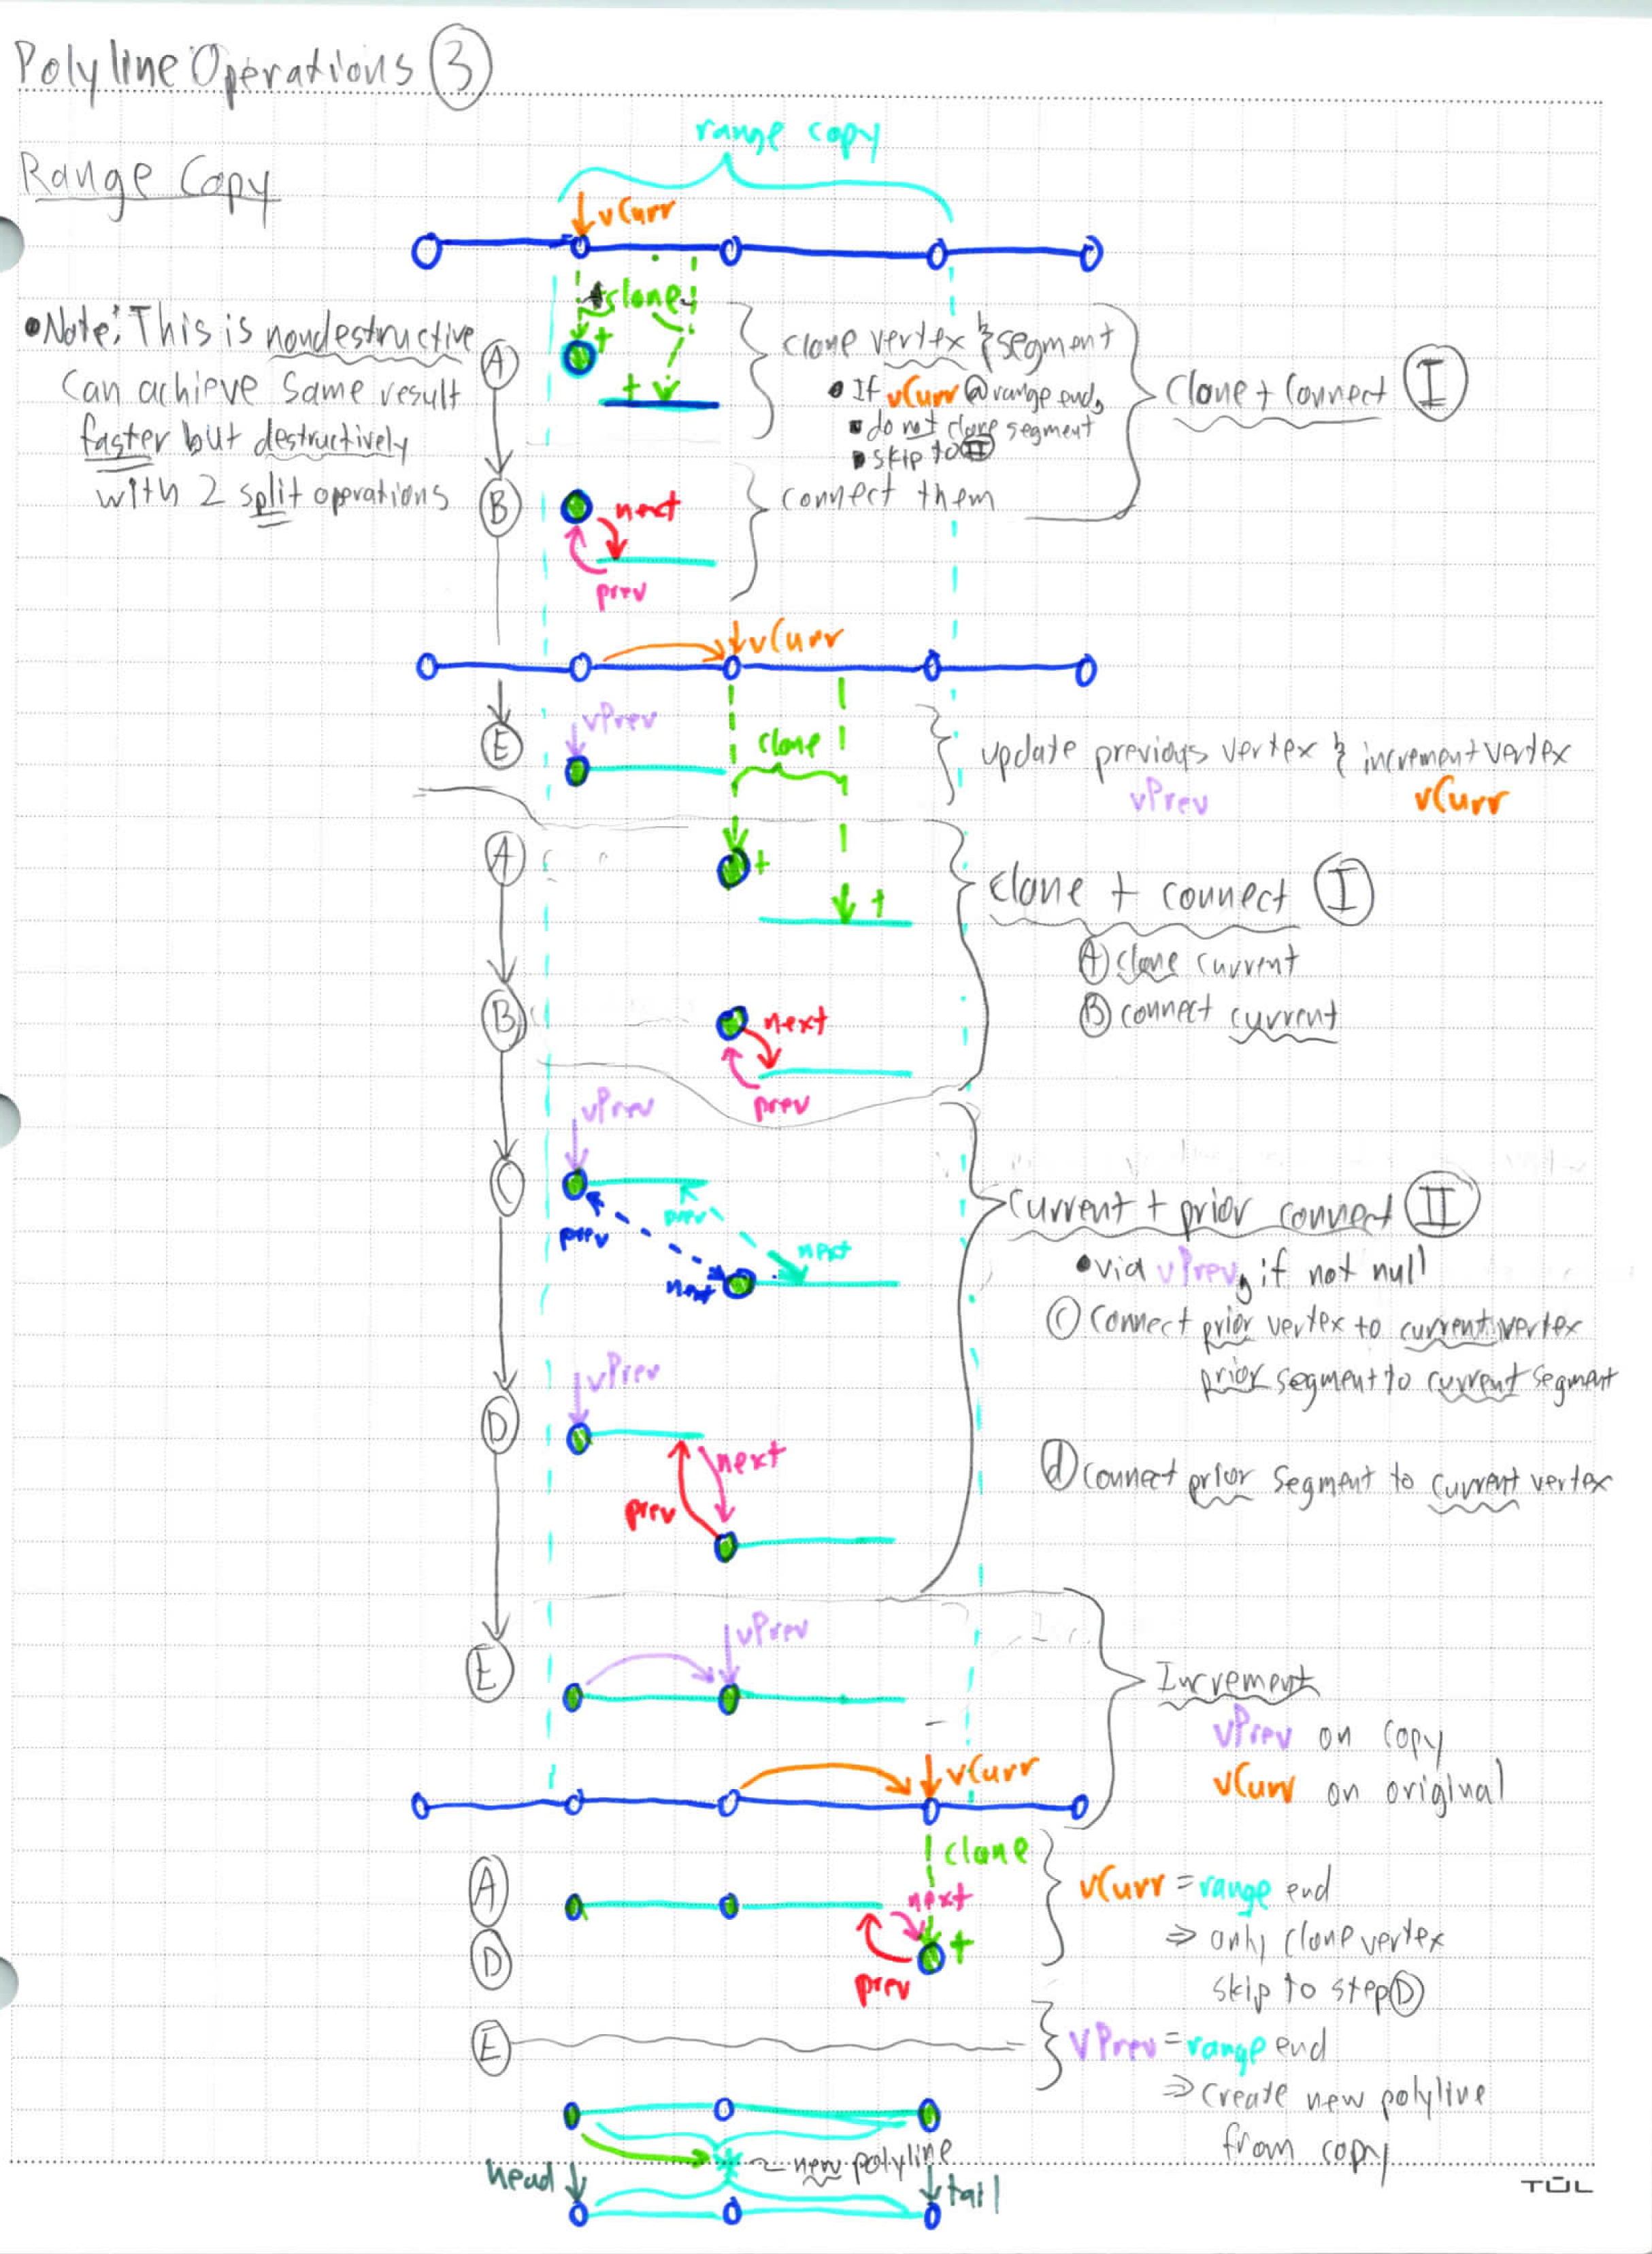 Polyline Operations ③
range copy
Range Copy
vCurr
clone
• Note: This is nondestructive
Can achieve same result
faster but destructively
with 2 split operations
Ⓐ
+
+
clone vertex & segment
• If vCurr @ range end,
▪ do not clone segment
▪ skip to Ⅱ
Clone + Connect Ⅰ
Ⓑ
next
prev
connect them
vCurr
Ⓔ
vPrev
clone
update previous vertex & increment vertex
vPrev
vCurr
Ⓐ
+
+
Clone + connect Ⅰ
Ⓐ clone current
Ⓑ connect current
Ⓑ
next
prev
vPrev
Ⓒ
prev
next
prev
next
Current + prior connect Ⅱ
• via vPrev, if not null
Ⓒ Connect prior vertex to current vertex
prior segment to current segment
vPrev
Ⓓ
next
prev
ⓓ Connect prior segment to current vertex
Ⓔ
vPrev
Increment
vPrev on copy
vCurr on original
vCurr
clone
Ⓐ
next
+
Ⓓ
prev
vCurr = range end
⇒ only clone vertex
skip to step Ⓓ
Ⓔ
vPrev = range end
⇒ Create new polyline
from copy
~ new polyline
head
tail
TŪL